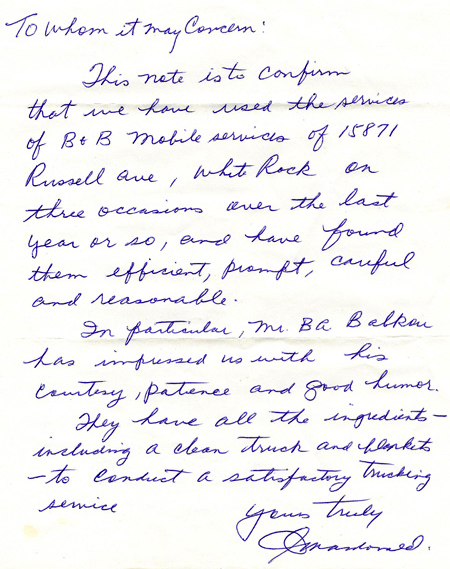 To Whom it may Concern:
This note is to confirm
that we have used the services
of B&B Mobile services of 15871
Russell Ave, White Rock on
three occasions over the last
year or so, and have found
them efficient, prompt, careful
and reasonable.
In particular, Mr. BA
has impressed us with his
courtesy, patience and good humor.
They have all the ingredients –
including a clean truck and blankets
– to conduct a satisfactory trucking
service
Yours truly